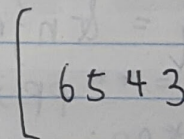 [ 6 5 4 3